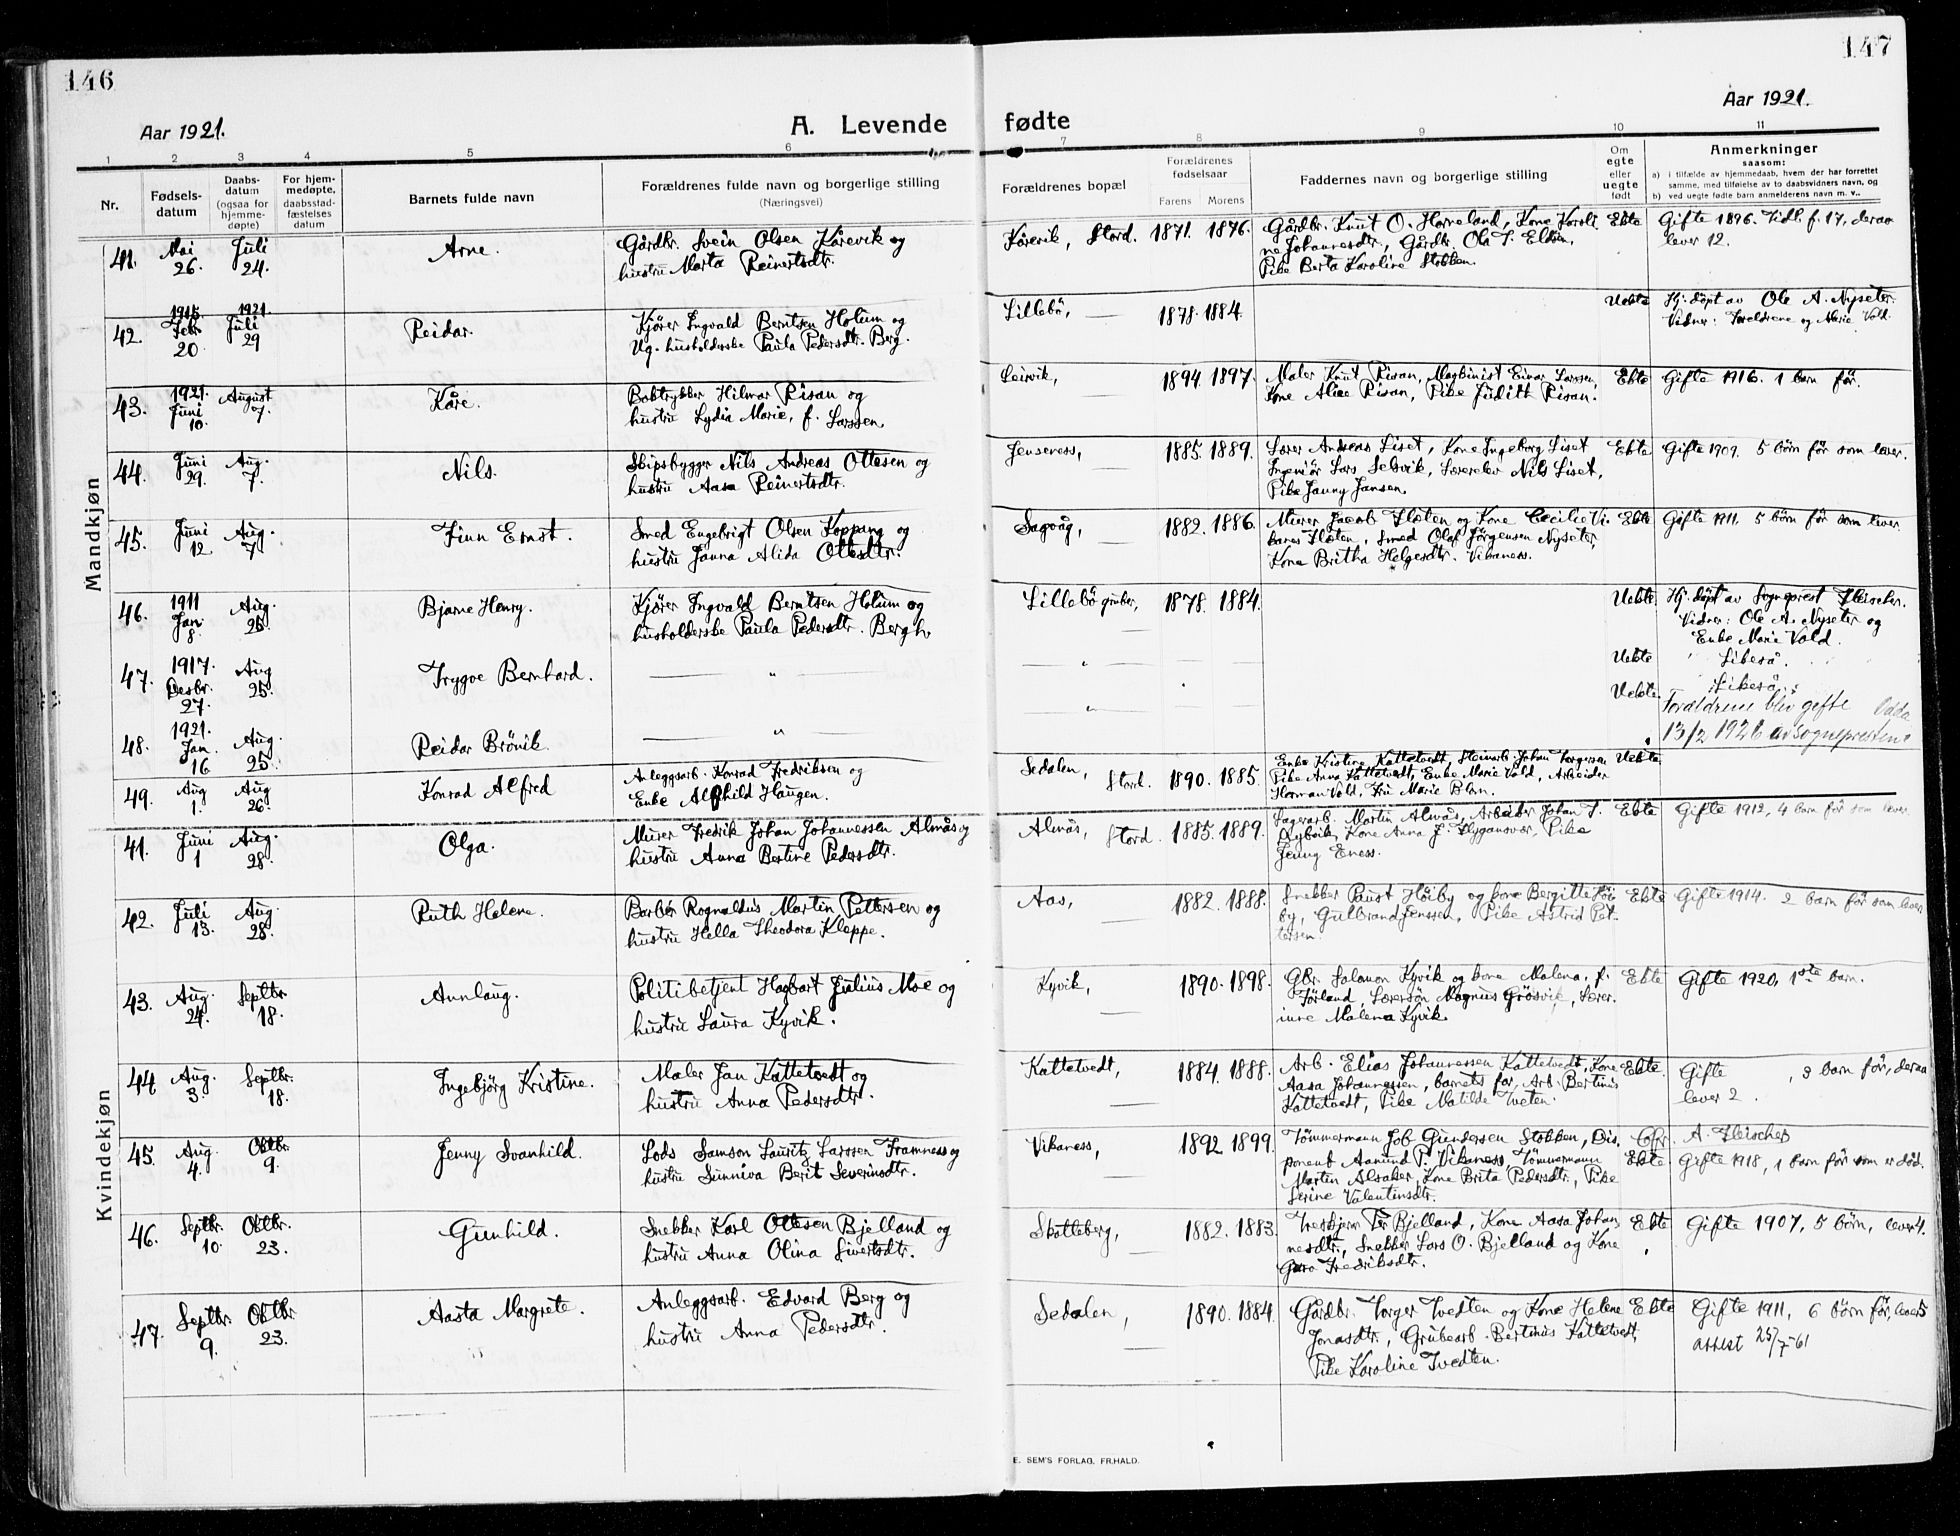 146
147
Aar 1921.
A. Levende
fødte
Aar 1921.
1 2 3 4 5 6 7 8 9 10 11
Nr.
Fødsels-
datum
Daabs-
datum
(ogsaa for
hjemme-
døpte)
For hjem-
medøpte,
daabsstad-
fæstelses
datum
Barnets fulde navn
Forældrenes fulde navn og borgerlige stilling
(Næringsvei)
Forældrenes bopæl
Forældrenes
fødselsaar
Farens Morens
Faddernes navn og borgerlige stilling
Om
egte
eller
uegte
født
Anmerkninger
saasom:
a) i tilfælde av hjemmedaab, hvem der har forrettet
samme, med tilføielse av to daabsvidners navn, og
b) ved uegte fødte barn anmelderens navn m. v..
Mandkjøn
41. Mai 26. Juli 24. Arne.
Gårdbr. Svein Olsen Kårevik og
hustru Marta Reinertsdtr.
Kårevik, Stord. 1871. 1876.
Gårdbr. Knut O. Horneland, Kone Karoli-
ne Johannesdtr., Gårdbr. Ola T. Eldøn,
Pike Berta Karoline Stokken.
Ekte
Gifte 1896. Tidl. f. 17, derav
lever 12.
42. 1915 Febr 20. 1921. Juli 29 Reidar.
Kjører Ingvald Berntsen Holum og
Ug. husholderske Paula Pedersdtr. Berg.
Lillebö, — 1878. 1884.
Uekte
Hj. döpt av Ole A. Nyseter.
Vidner: Foreldrene og Marie Vold.
43. 1921. Juni 10. August 7. Kåre.
Boktrykker Hilmar Risan og
hustru Lydia Marie, f. Larssen.
Leirvik, — 1894. 1897.
Maler Knut Risan, Maskinist Einar Larssen,
Kone Alice Risan, Pike Judith Risan.
Ekte
Gifte 1916. 1 barn før.
44. Juni 29. Aug. 7. Nils.
Skipsbygger Nils Andreas Ottesen og
hustru Aasa Reinertsdtr.
Jenseness, — 1885. 1889.
Lærer Andreas Liset, Kone Ingeborg Liset
Ingeniör Lars Selsvik, Lærerelev Nils Liset,
Pike Janny Jansen.
Ekte
Gifte 1909. 5 börn för som lever.
45. Juni 12. Aug. 7 Finn Ernst.
Smed Engebrigt Olsen Kopping og
hustru Janna Alida Ottesdtr.
Sagvåg, — 1882. 1886.
Murer Jacob Floten og Kone Cecilie Vi-
kanes Floten, Smed Olaf Jörgensen Nyseter,
Kone Britha Helgesdtr. Vikaness.
Ekte
Gifte 1911. 5 börn för som lever.
46. 1911 Jan 8. Aug. 25. Bjarne Henry.
Kjører Ingvald Berntsen Holum og
husholderske Paula Pedersdtr. Bergh.
Lillebö gruber, — 1878. 1884.
Uekte.
Hj. döpt av Sogneprest Fleischer.
Vidner: Ole A. Nyseter og
Enke Marie Vold.
47. 1917. Desbr. 27. Aug 25. Trygve Bernhard.
— " —
— " —
Uekte
Likeså.
48. 1921. Jan. 16 Aug. 25. Reidar Brönik.
— " —
— " —
Uekte.
Likeså.
Foreldrene blev gifte Odda
13/2 1926 av sogneprestene
49. Aug 1. Aug 26. Konrad Alfred
Anleggsarb. Konrad Fredriksen og
Enke Alfhild Haugen.
Sedalen, Stord. 1890. 1885.
Enke Kristine Kattetvedt, Steinarb. Johan Torgersen
Pike Anna Kattetvedt, Enke Marie Vold, Arbeider
Herman Vold, Fru Marie Blom.
Uekte
Kvindekjøn
41. Juni 1 Aug. 28. Olga.
Murer Fredrik Johan Johannessen Almås og
hustru Anna Bertine Pedersdtr.
Almås, Stord. 1885. 1889.
Sagarb. Martin Almås, Arbeider Johan T.
Rybvik, Kone Anna J. Flygansvær, Pike
Jenny Eness.
Ekte
Gifte 1912, 4 barn før som lever
42. Juli 13. Aug 28. Ruth Helene.
Barbér Rognaldus Martin Pettersen og
hustru Hella Theodora Kleppe.
Aas, — 1882. 1888.
Snekker Paust Höiby og kone Bergitte Höi-
by, Gulbrand Jenssen, Pike Astrid Pet-
tersen.
Ekte
Gifte 1914. 2 barn før som lever
43. Aug. 24. Septbr 18. Aunlaug.
Politibetjent Hagbart Julius Moe og
hustru Laura Kyvik.
Kyvik, — 1890. 1898.
Gbr. Salamon Kyvik og kone Malena, f.
Förland, Lærersön Magnus Grösvik, Lærer-
inne Malena Kyvik.
Ekte
Gifte 1920, 1ste barn.
44 Aug. 3. Septbr. 18. Ingebjörg Kristine.
Maler Jan Kattetvedt og
hustru Anna Pedersdtr.
Kattetvedt, — 1884. 1888.
Arb. Elias Johannessen Kattetvedt, Kone
Aasa Johannessen, barnets far, Arb. Bertinus
Kattetvedt, Pike Matilde Tveten.
Ekte.
Gifte , 3 barn før, derav
lever 2.
45. Aug. 4. Oktbr. 9. Jenny Svanhild.
Lods Samson Lauritz Larssen Framness og
hustru Sunniva Berit Severinsdtr.
Vikaness, — 1892. 1899.
Tömmermann Job Gundersen Stokken, Dis-
ponent Aamund P. Vikaness, Tömmermann
Martin Alsaker, Kone Brita Pedersdtr., Pike
Serine Valentinsdtr.
Cfr. A. Fleischer
Ekte.
Gifte 1918, 1 barn før som er död.
46. Septbr. 10. Oktbr. 23. Gunhild.
Snekker Karl Ottesen Bjelland og
hustru Anna Olina Sivertsdtr.
Skotteberg, — 1882. 1883.
Treskjærer Per Bjelland, Kone Aasa Johan-
nesdtr., Snekker Lars O. Bjelland og Kone
Guro Fredriksdtr.
Ekte
Gifte 1907, 5 börn, lever 4.
47. Septbr. 9. Oktbr. 23. Aasta Margrete.
Anleggsarb. Edvard Berg og
hustru Anna Pedersdtr.
Sedalen, — 1890. 1884.
Gårdbr. Torger Tvedten og Kone Helene
Jonasdtr., Grubearb. Bertinus Kattetvedt,
Pike Karoline Tvedten.
Ekte
Gifte 1911, 6 börn før, lever 5
attest 25/7-61
E. SEM'S FORLAG, FR.HALD.